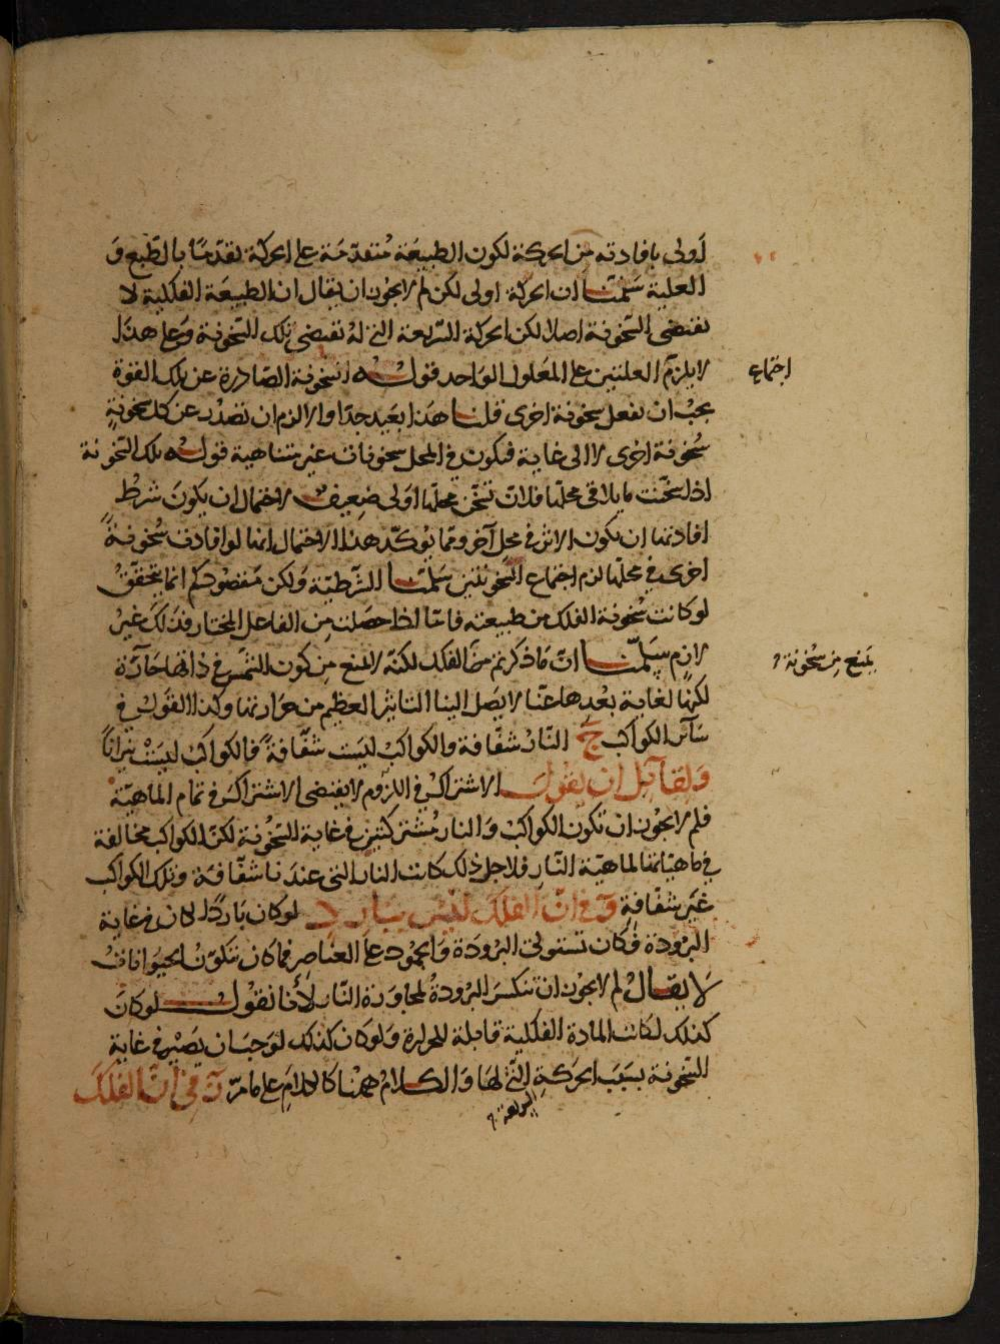 اولى بافادته من الحركة لكون الطبيعة متقدمة على الحركة تقدما بالطبع و
العلية سلمنا ان الحركة اولى لكن لم لا يجوز ان يقال ان الطبيعة الفلكية لا
تقتضى السخونة اصلا لكن الحركة السريعة التى له تقتضى تلك السخونة وعلى هذا
لا يلزم العلتين على المعلول الواحد قوله السخونة الصادرة عن تلك القوة
اجتماع
يجب ان تفعل سخونة اخرى قلنا هذا بعيد جدا والا لزم ان تصدر عن كل سخونةٍ
سُخونة اخرى لا الى غاية فيكون فى المحل سخونات غير متناهية قوله تلك السخونة
اذا سخنت ما يلاقى محلها فلان تسخن محلها اولى ضعيف لاحتمال ان يكون شرط
افادتها ان يكون الاثر فى محل آخر ومما يؤكد هذا الاحتمال انها لو افادت سُخونةً
اخرى فى محلها لزم اجتماع السخونتين سلمنا الشرطية ولكن مقصودكم انما يتحقق
لو كانت سخونة الفلك من طبيعته فاما اذا حصلت من الفاعل المختار فذلك غير
لازم سلّمنا ان ما ذكرتم فى الفلك لكنه لا يمنع من كون الشمس فى ذاتها حارّة
يمنع من سخونة
لكنها لغاية بعدها عنا لا يصل الينا التاثير العظيم من حرارتها وكذا القول فى
سآئر الكواكب ج النار شفافة والكواكب ليست شفّافةً فالكواكب ليست نيراناً
ولقائل ان يقول الاشتراك فى اللزوم لا يقتضى الاشتراك فى تمام الماهيّة
فلم لا يجوز ان تكون الكواكب والنار مشتركتين فى غاية السخونة لكن الكواكب مخالفة
فى ماهياتها لماهيّة النّار فلاجل ذلك كانت النار التى عندنا شفافة وتلك الكواكب
غير شفّافةٍ وَ فى انّ الفلك ليس ببارد لو كان باردًا لكان فى غاية
البرودة فكان تستولى البرودة والجمود على العناصر فما كان تتكون الحيوانات
لا يقال لم لا يجوز ان تنكسر البرودةُ لمجاورة النّار لأنا نقول لو كان
كذلك لكانت المادة الفلكية قابلة للحرارة ولو كان كذلك لوجب ان يصير فى غاية
السخونة بسبب الحركة التى لها والكلام ههنا كالكلام على ما مرّ فى انّ الفلك
السريعة